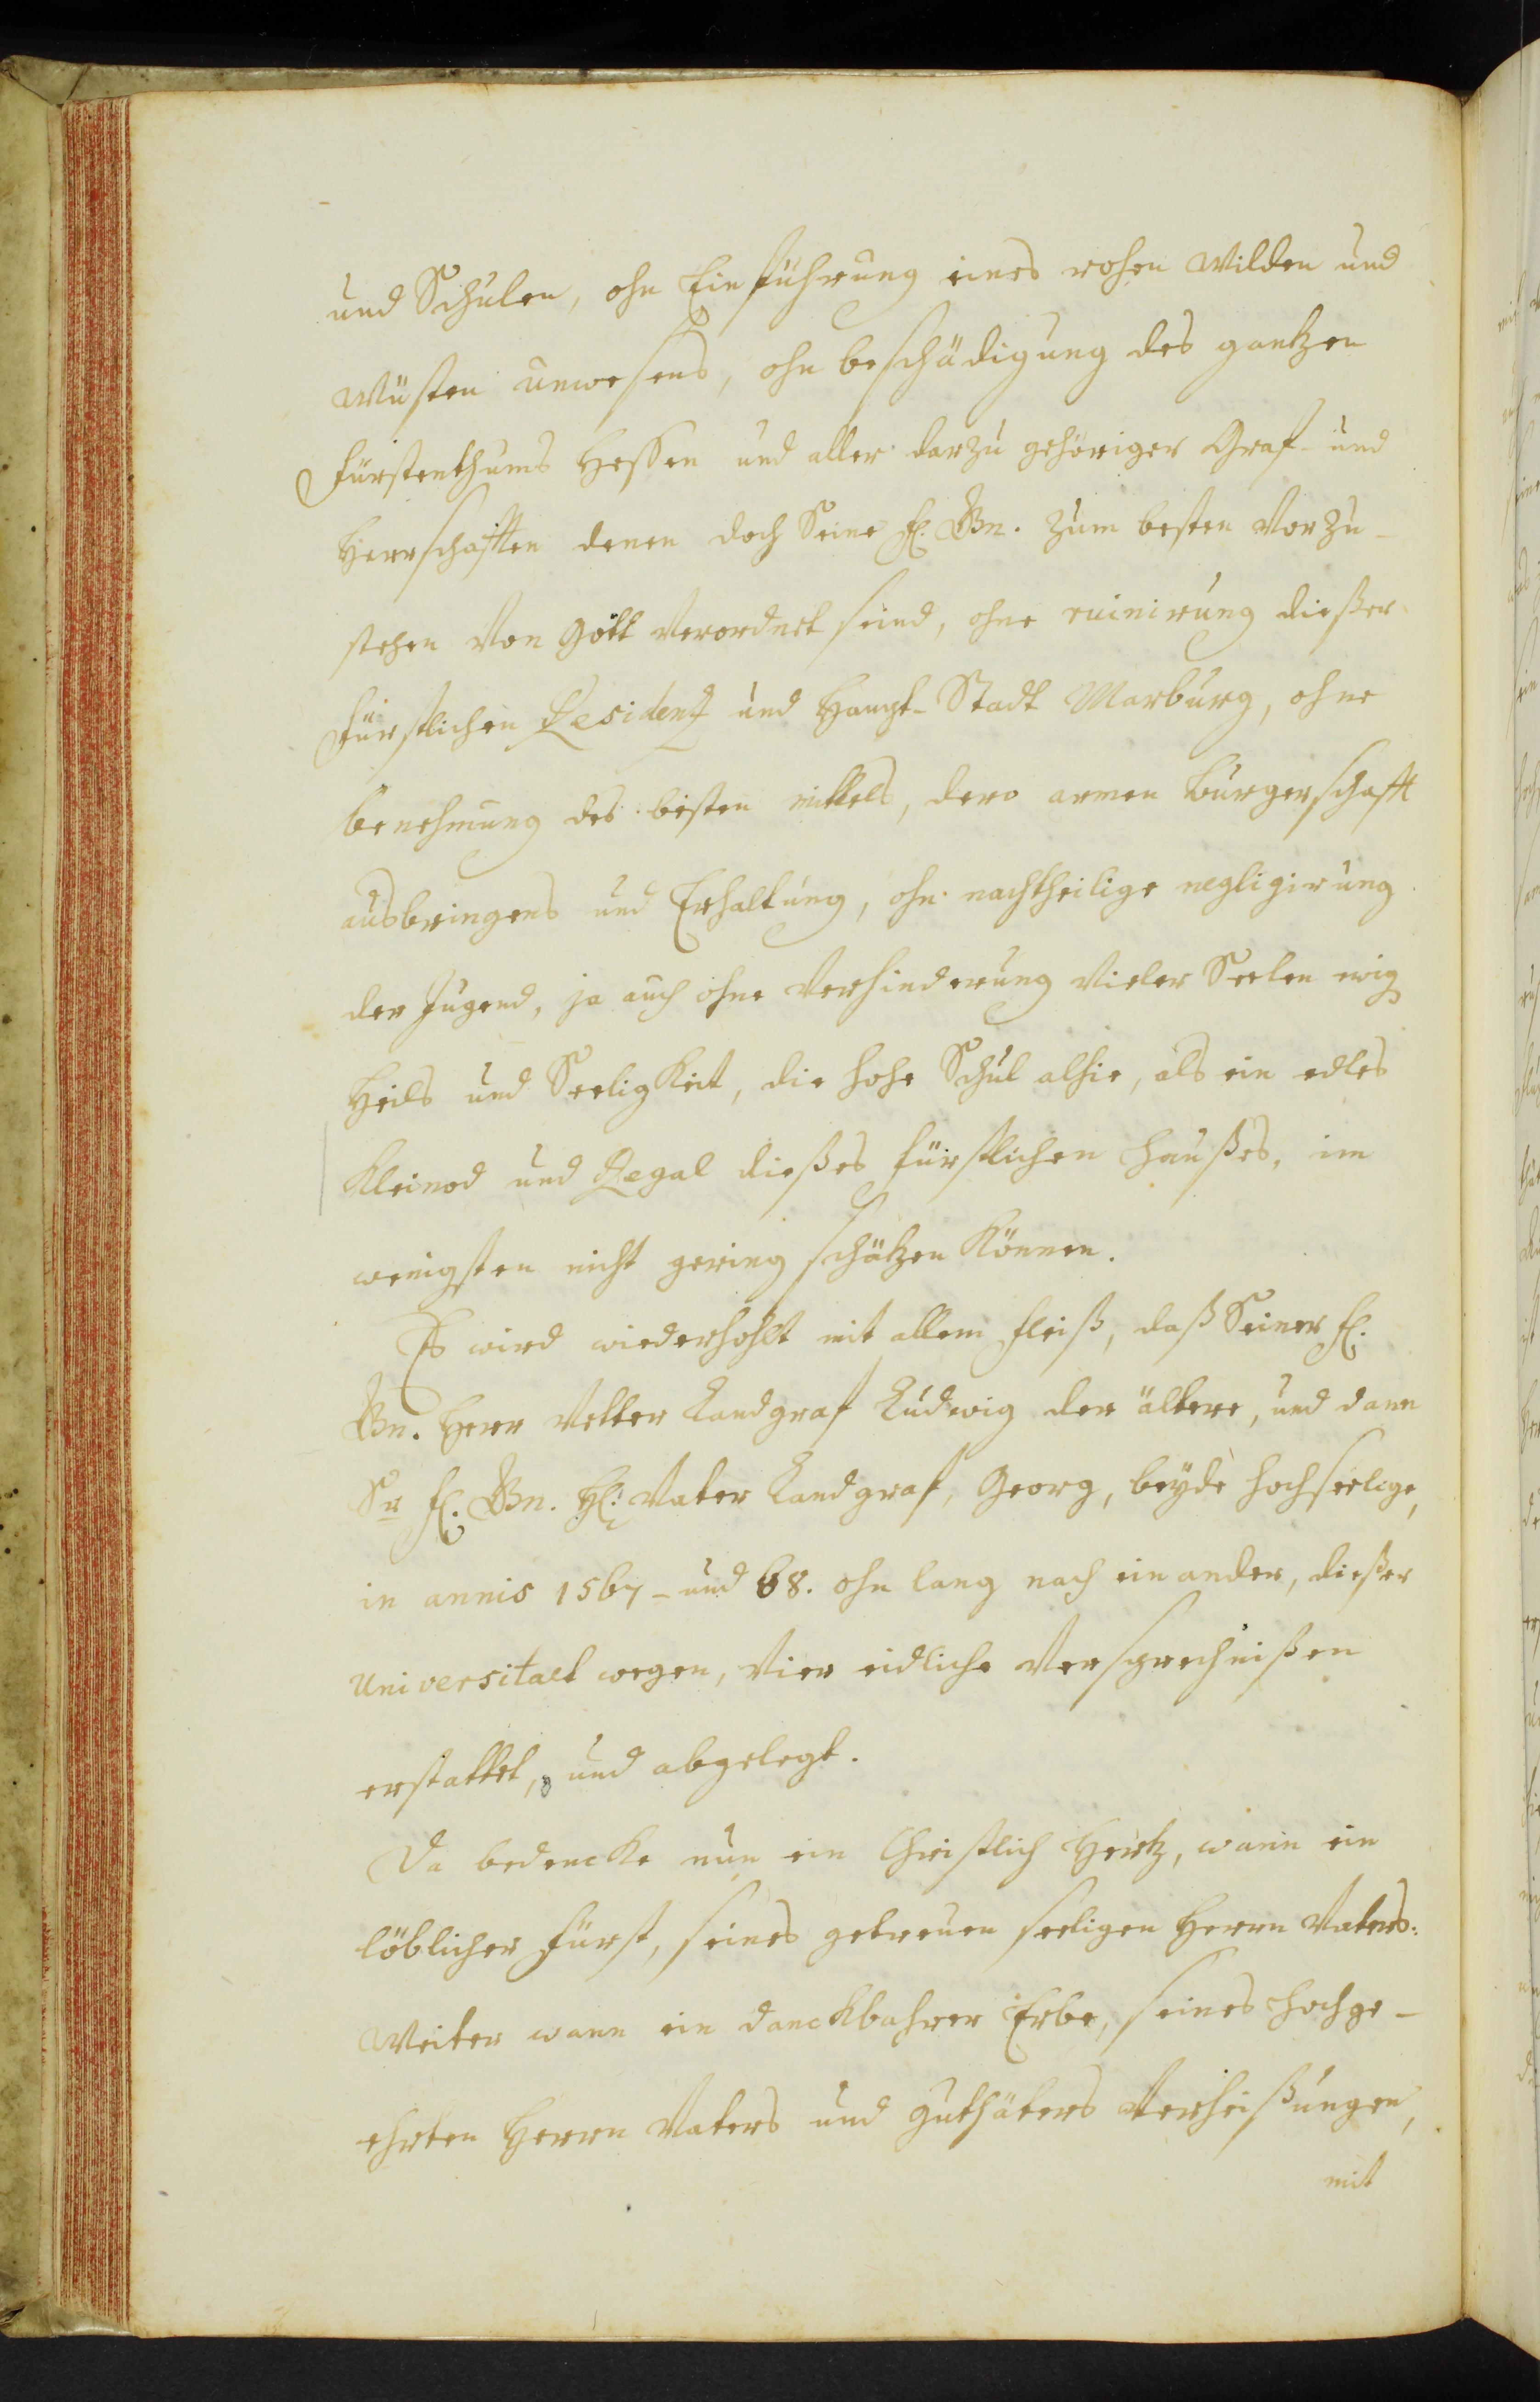 und Schulen, ohn Einführung eines rohen wilden und
wüsten unwesens, ohn beschädigung des gantzen
fürstenthums Hessen und aller darzu gehöriger Graf- und
Herrschafften denen doch Seine f. Gn. zum besten vorzu-
stehen von Gott verordnet seind, ohne ruinirung dießer
fürstlichen Residentz und Haupt-Stadt Marburg, ohne
benehmung des besten mittels, dero armen bürgerschafft
ausbringens und Erhaltung, ohn nachtheilige negligirung
der Jugend, ja auch ohne verhinderung vieler Seelen ewig
Heils und Seeligkeit, die hohe Schul alhie, als ein edles
Kleinod und Regal dießes fürstlichen Haußes, im
wenigsten nicht gering schätzen können.
Es wird wiederhohlt mit allem fleiß, daß Seiner f.
Gn. Herr vetter Landgraf Ludwig der ältere, und dann
Sr. f. Gn. H: vater Landgraf, Georg, beyde hochseelige,
in annis 1567- und 68. ohn lang nach einander, dießer
Universitaet wegen, vier eidliche versprechnißen
erstattet, und abgelegt.
Da bedencke nun ein Christlich Hertz, wann ein
löblicher fürst, seines getreuen seeligen Herrn vaters:
weiter wann ein danckbahrer Erbe, seines hochge-
ehrten Herrn vaters und Guthäters verheißungen,
mit